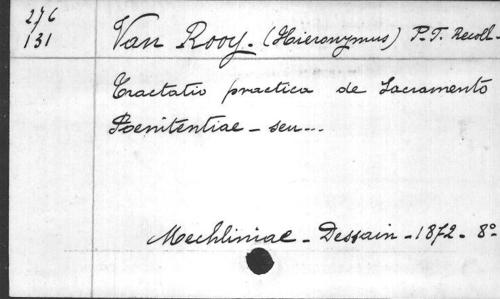 276
131
Van Rooy. (Hieronymus) P. F. Recoll.
Tractatio practica de Sacramento
Poenitentiae - seu...
Mechliniae - Dessain - 1872 - 8°